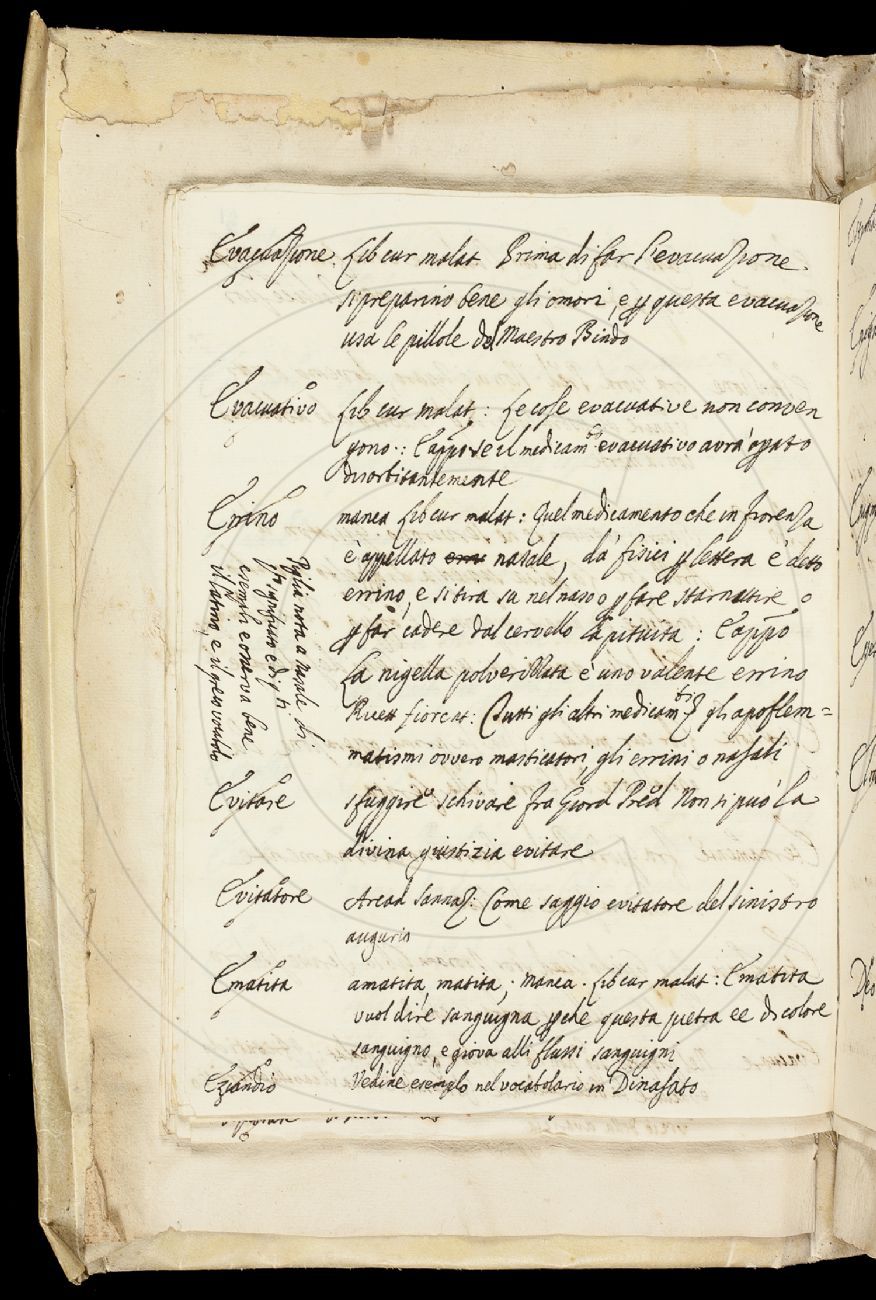 Evacuazione. Lib cur malat. Prima di far l'evacuazione
si preparino bene gli omori, e p questa evacuazione
usa le pillole del Maestro Bindo
Evacuativo Lib cur malat: Le cose evacuative non conven
gono.: E app.º se il medicamto evacuativo avrà opato
disorbitantemente
Errino manca Lib cur malat: Quel medicamento che in fiorenza
è appellato nasale, da' fisici p lettera è detto
errino, e si tira su nel naso o p fare starnutire o
p far cadere dal cervello la pituita: E appº
La nigella polverizzata è uno valente errino
Ricett fiorent: (Tutti gli altri medicamti) gli apoflem=
matismi ovvero masticatori, gli errini o nasali
Piglia nota a nasale di
esempli e osserva bene
il latino, e il greco vocabolo
Evitare sfuggire schivare fra Giord Pred Non si può la
divina giustizia evitare
Evitatore Arcad Sannaz: Come saggio evitatore del sinistro
augurio
Ematita amatita, matita; manca. Lib cur malat: Ematita
vuol dire sanguigna pche questa pietra ee di colore
sanguigno, e giova alli flussi sanguigni
Eziandio Vedine esemplo nel vocabolario in Dinasato